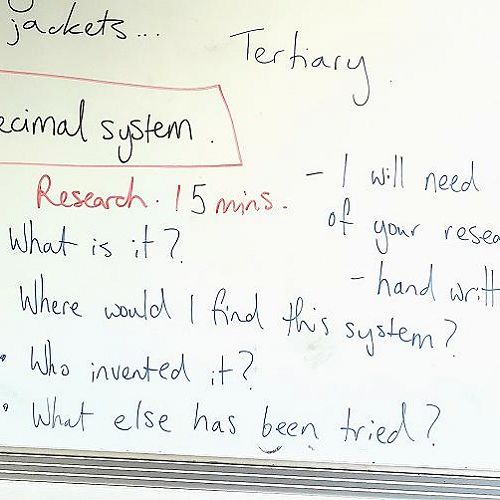 jackets...
Tertiary.
ecimal system.
Research. 15 mins.
What is it?
Where would I find this system?
• Who invented it?
• What else has been tried?
- I will need
of your resea
- hand writt